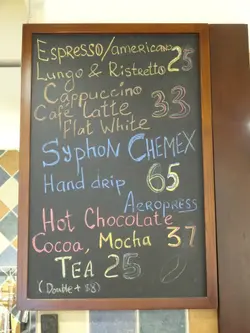 Espresso/americano
Lungo & Ristretto 25
Cappuccino
Cafe Latte 33
Flat White
Syphon CHEMEX
Hand drip 65
Aeropress
Hot Chocolate
Cocoa, Mocha 37
TEA 25
(Double + $8)